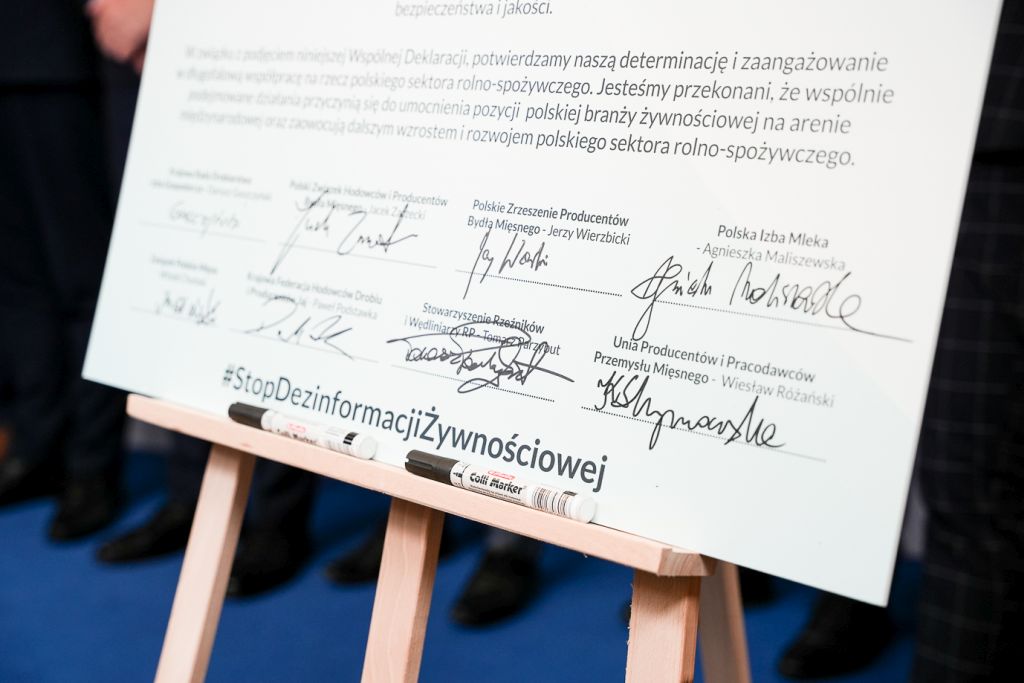 bezpieczeństwa i jakości.
W związku z podjęciem niniejszej Wspólnej Deklaracji, potwierdzamy naszą determinację i zaangażowanie
w długofalową współpracę na rzecz polskiego sektora rolno-spożywczego. Jesteśmy przekonani, że wspólnie
podejmowane działania przyczynią się do umocnienia pozycji polskiej branży żywnościowej na arenie
międzynarodowej oraz zaowocują dalszym wzrostem i rozwojem polskiego sektora rolno-spożywczego.
Krajowa Rada Drobiarstwa
Polski Związek Hodowców i Producentów
Bydła Mięsnego - Jacek Zarzecki
Polskie Zrzeszenie Producentów
Bydła Mięsnego - Jerzy Wierzbicki
Polska Izba Mleka
- Agnieszka Maliszewska
Krajowa Federacja Hodowców Drobiu
i Producentów Jaj - Paweł Podstawka
Stowarzyszenie Rzeźników
i Wędliniarzy RP - Tomasz Parzybut
Unia Producentów i Pracodawców
Przemysłu Mięsnego - Wiesław Różański
#StopDezinformacjiŻywnościowej
Colli Marker